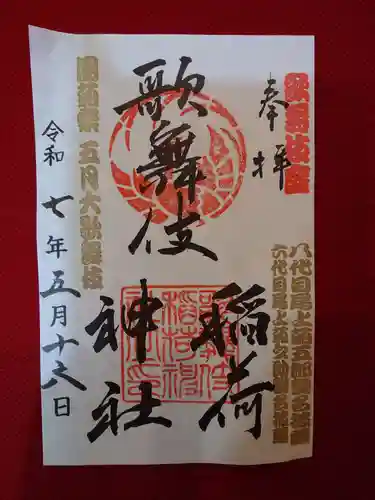 歌舞伎座
奉拝
八代目尾上菊五郎襲名披露
六代目尾上菊之助襲名披露
歌舞伎
稲荷
神社
團菊祭 五月大歌舞伎
令和七年五月十六日